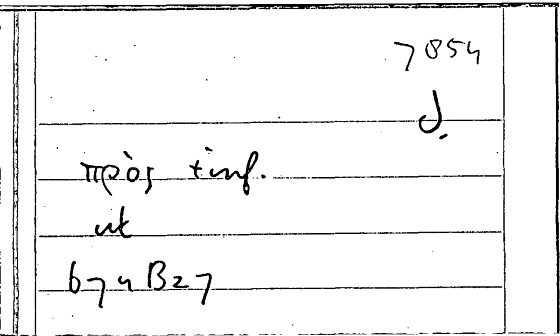 7854
d.
πρὸς +inf.
ut
674B27